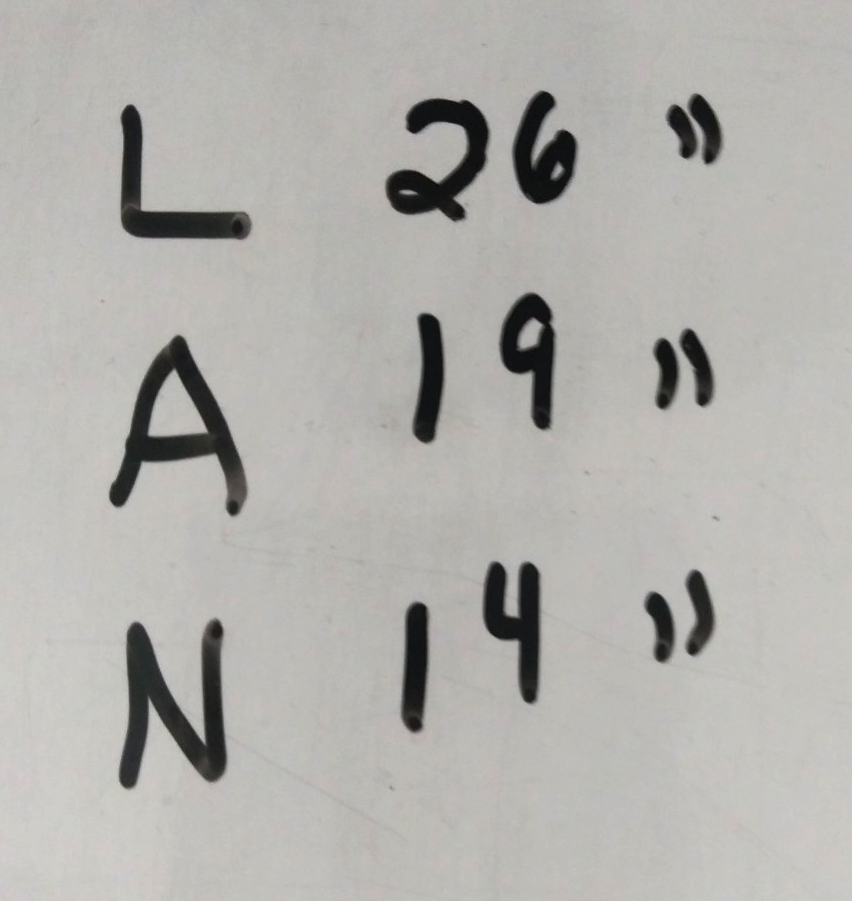 L 26 "
A 19 "
N 14 "